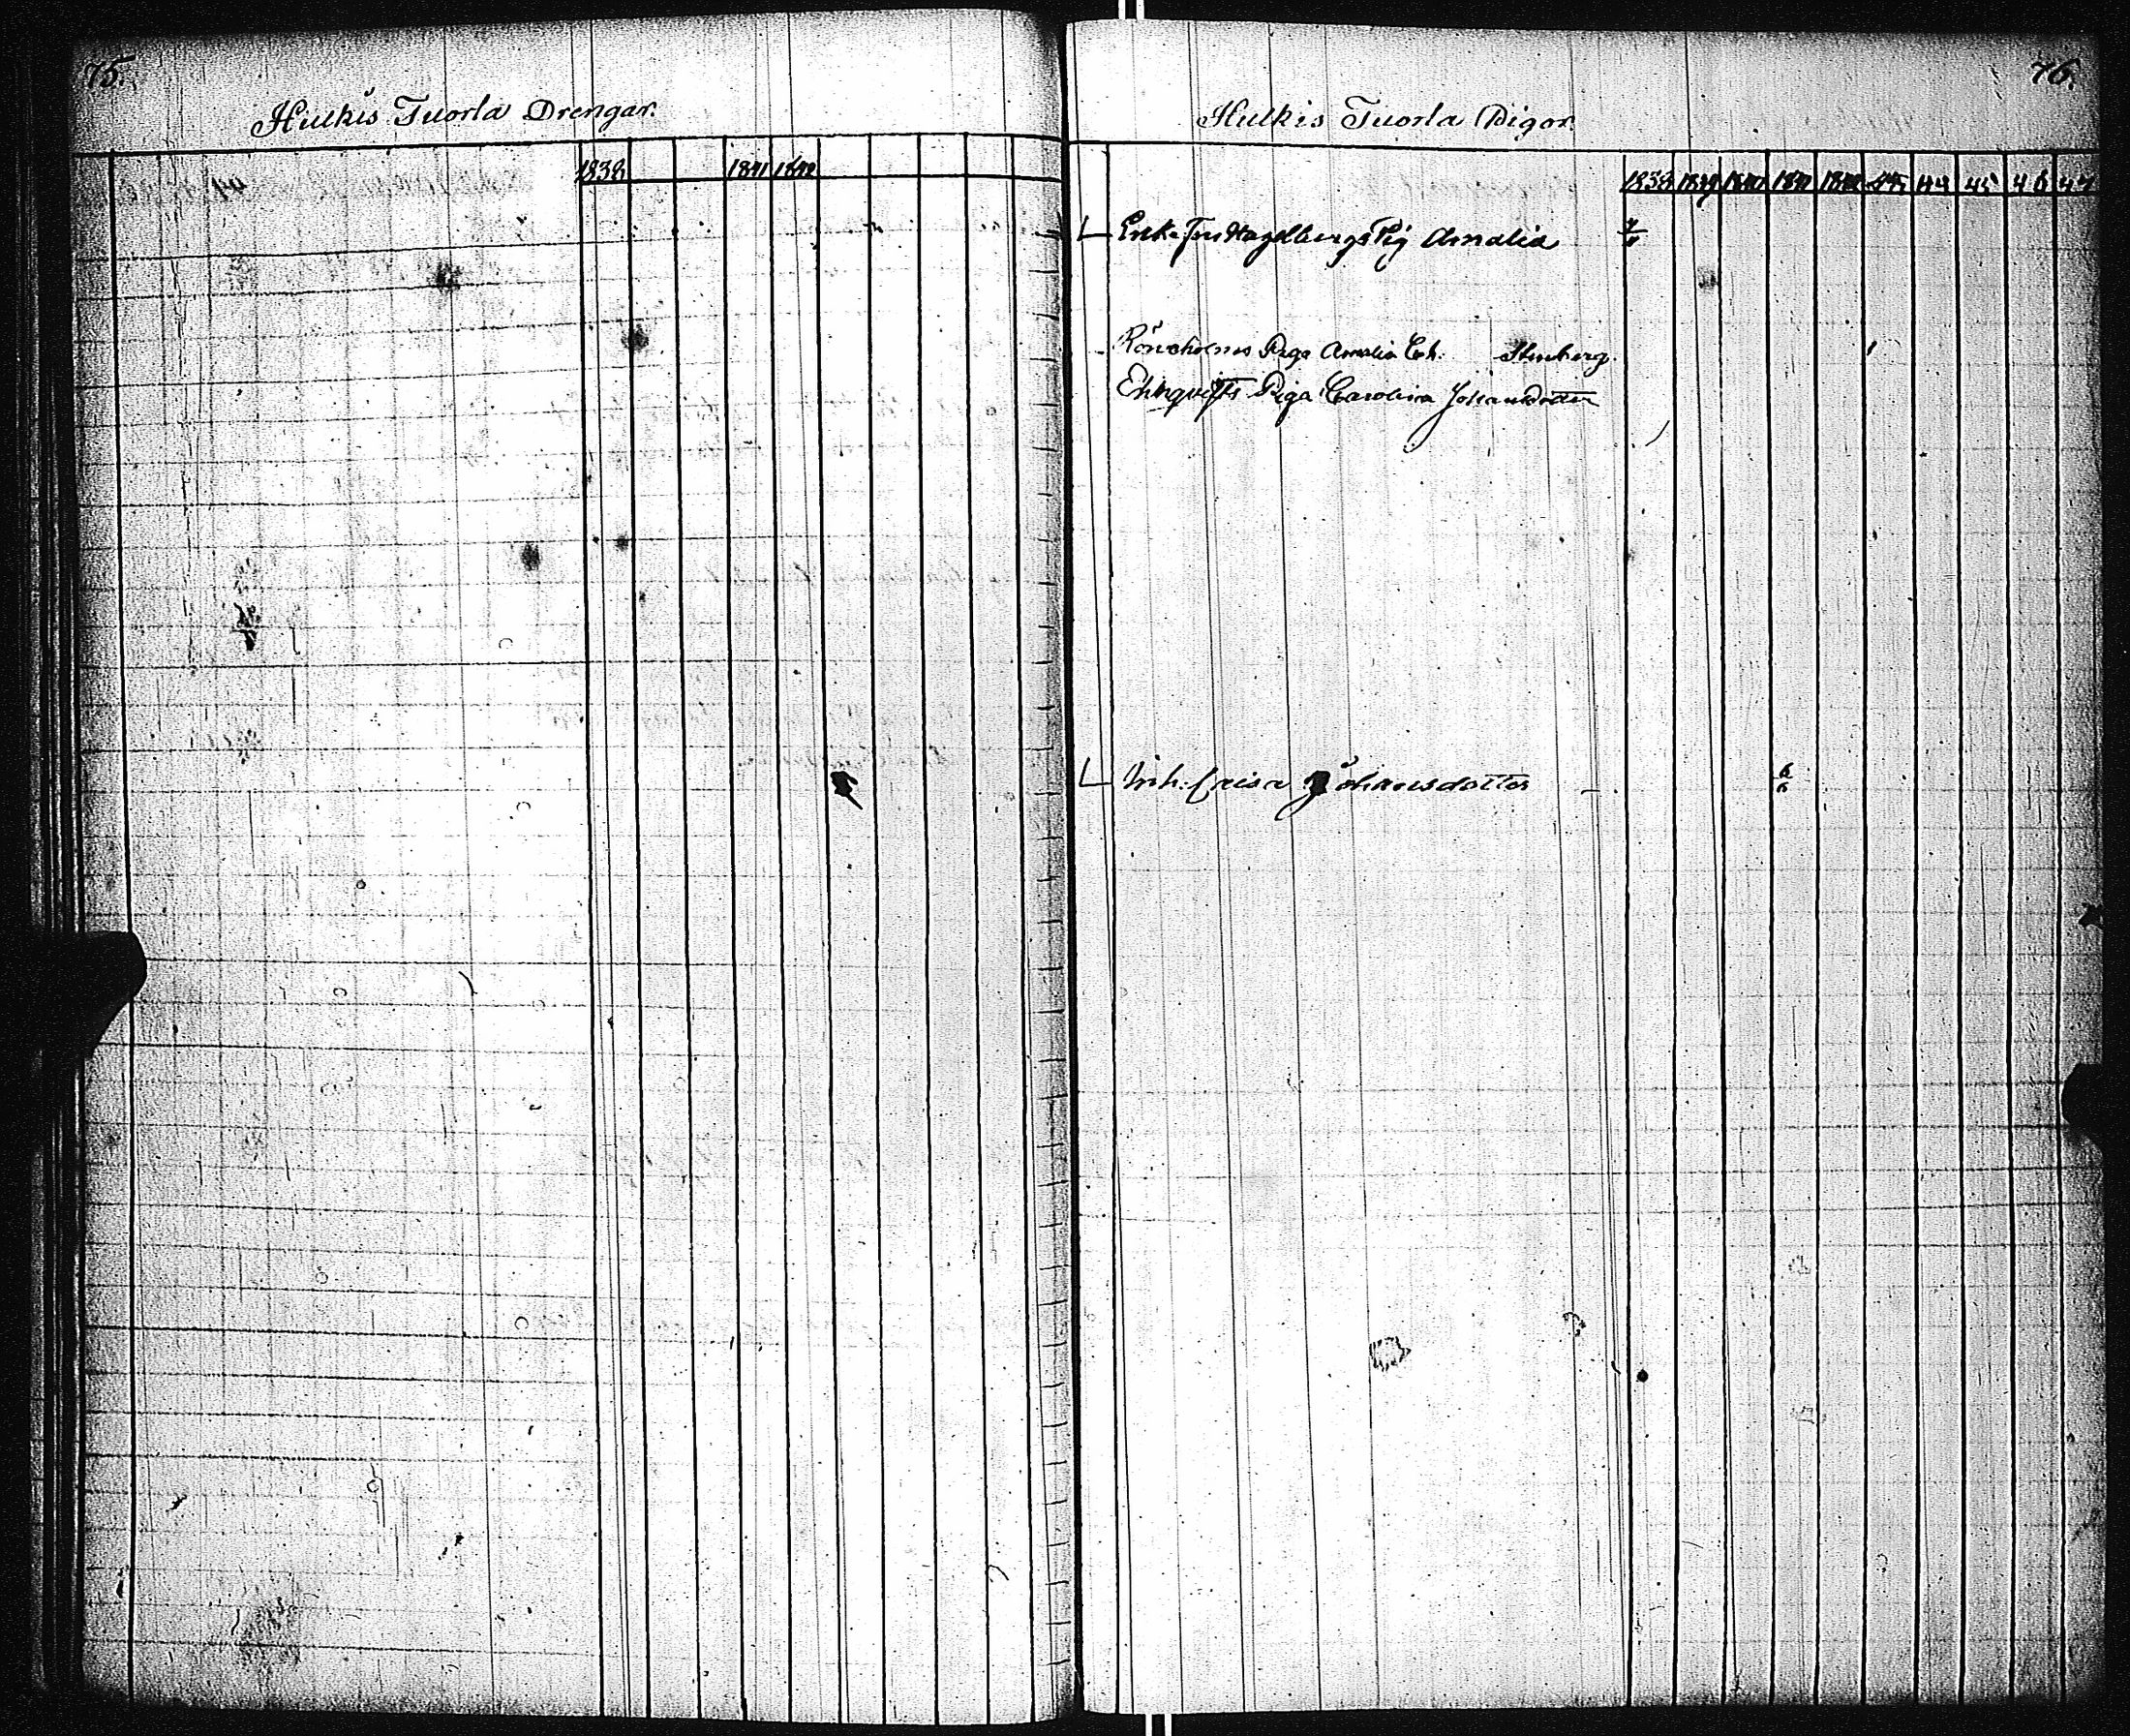 75.
Hulkis Tuorla Drengar.
1838 1841 1842
76.
Hulkis Tuorla Pigor.
1838 1839 1840 1841 1842 43 44 45 46 47
Enke Fru Hagelbergs Pig Amalia
Piga Amalia Stenberg.
Ehrnqvists Piga Carolina Johansdotter
Inh. Caisa Johansdotter